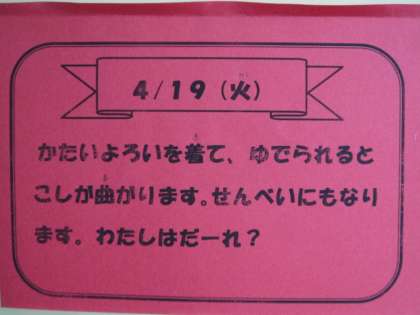 4/19（火）
かたいよろいを着て、ゆでられると
こしが曲がります。せんべいにもなり
ます。わたしはだーれ？